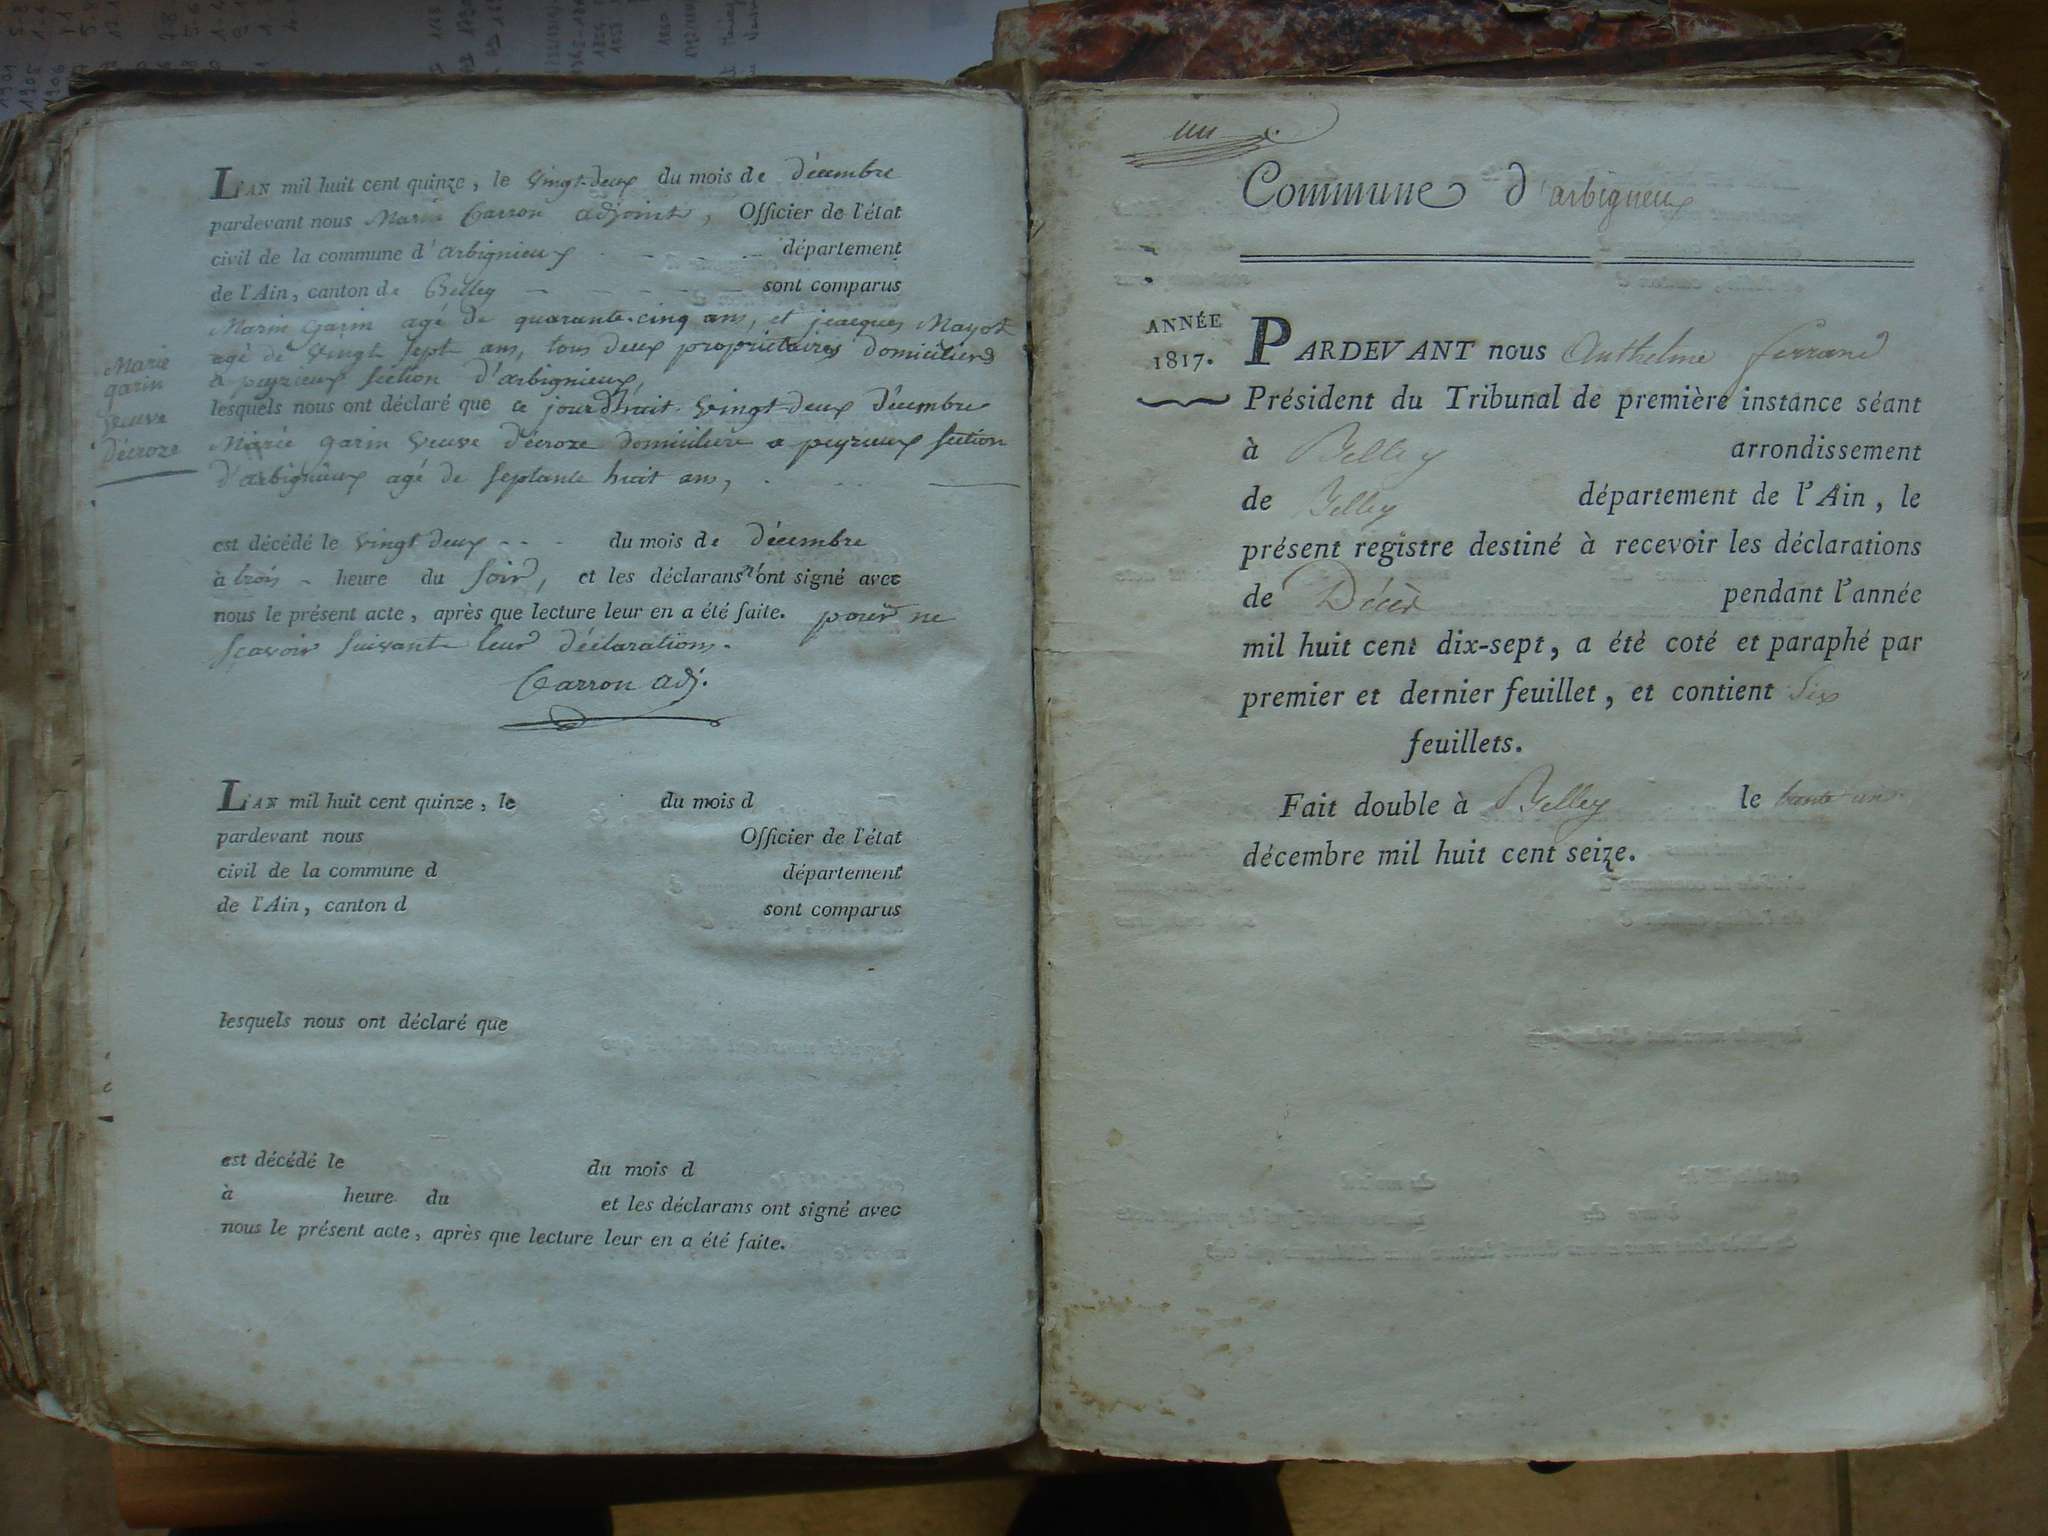 L'AN mil huit cent quinze, le vingt-deux du mois de décembre
pardevant nous Marin Carron adjoint, Officier de l'état
civil de la commune d'arbignieux département
de l'Ain, canton de Belley sont comparus
Marin Garin agé de quarante-cinq ans, et jeacques Mayot
agé de vingt sept ans, tous deux propriétaires domiciliers
a peyrieux section d'arbignieux,
lesquels nous ont déclaré que ce jourd'huit vingt-deux décembre
Marie garin veuve décroze domicilière a peyrieux section
d'arbignieux agé de septante huit ans,
Marie
garin
veuve
décroze
est décédé le vingt deux du mois de décembre
à trois heure du soir, et les déclarans n'ont signé avec
nous le présent acte, après que lecture leur en a été faite. pour ne
scavoir suivant leur déclarations.
Carron adj.
L'AN mil huit cent quinze, le du mois d
pardevant nous Officier de l'état
civil de la commune d département
de l'Ain, canton d sont comparus
lesquels nous ont déclaré que
est décédé le du mois d
à heure du et les déclarans ont signé avec
nous le présent acte, après que lecture leur en a été faite.
un
Commune d'arbigneux
ANNÉE
1817.
PARDEVANT nous Anthelme ferrand
Président du Tribunal de première instance séant
à Belley arrondissement
de Belley département de l'Ain, le
présent registre destiné à recevoir les déclarations
de Décès pendant l'année
mil huit cent dix-sept, a été coté et paraphé par
premier et dernier feuillet, et contient six
feuillets.
Fait double à Belley le trente un
décembre mil huit cent seize.